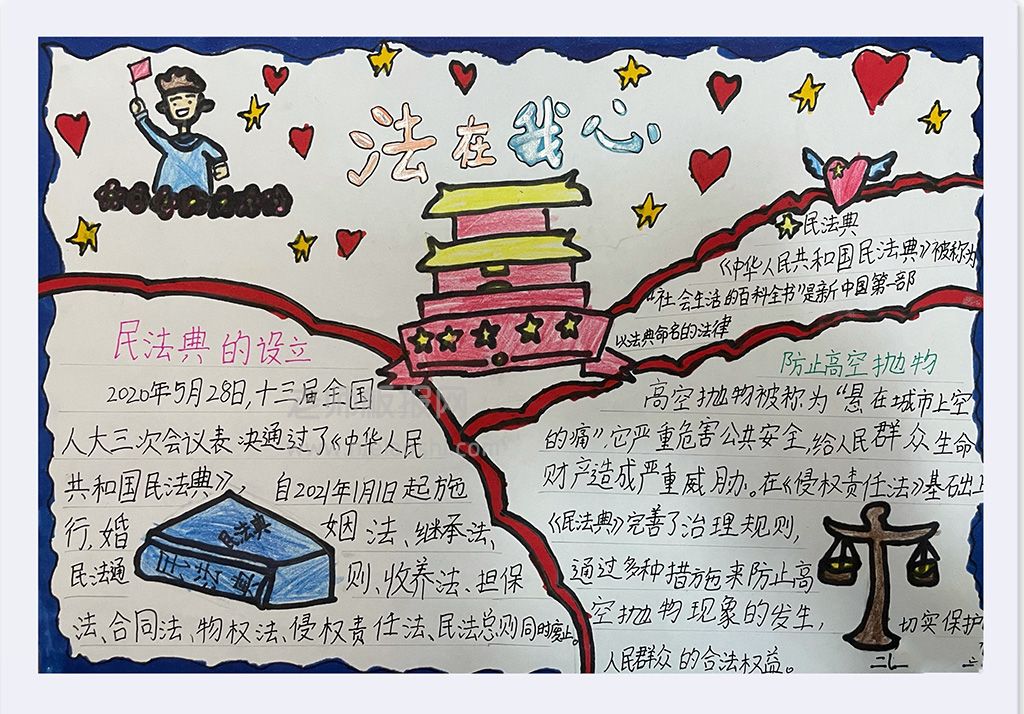 法在我心
民法典
《中华人民共和国民法典》被称为
“社会生活的百科全书”是新中国第一部
以法典命名的法律
民法典的设立
2020年5月28日,十三届全国
人大三次会议表决通过了《中华人民
共和国民法典》,自2021年1月1日起施
行,婚姻法、继承法、
民法通则、收养法、担保
法、合同法、物权法、侵权责任法、民法总则同时废止。
民法典
防止高空抛物
高空抛物被称为“悬在城市上空
的痛”,它严重危害公共安全,给人民群众生命
财产造成严重威胁。在《侵权责任法》基础上
《民法典》完善了治理规则,
通过多种措施来防止高
空抛物现象的发生,切实保护
人民群众的合法权益。